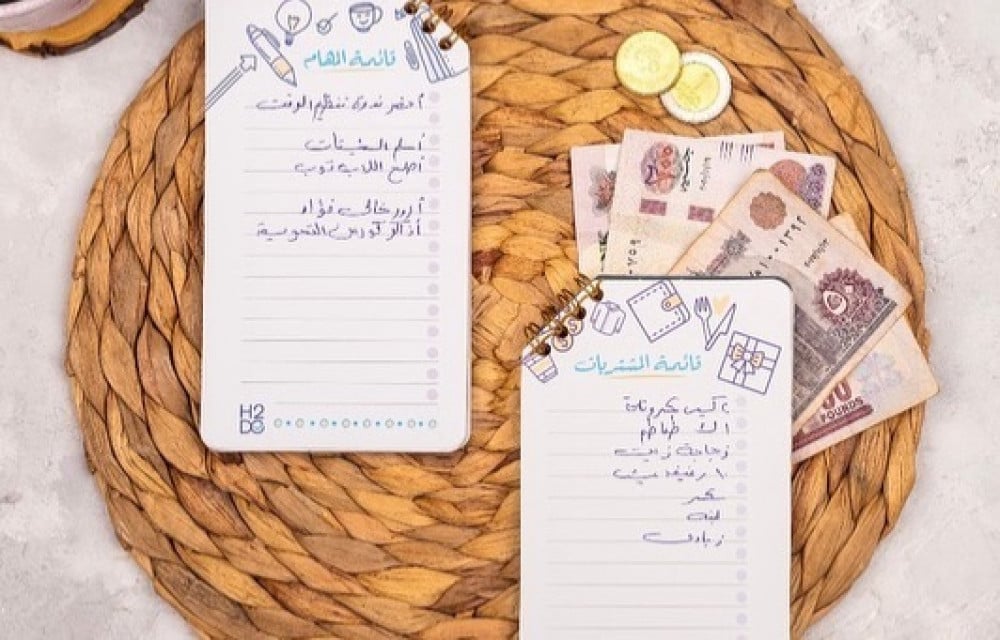 قائمة المهام
أحضر ندوة تنظيم الوقت
أسلم السكيتشات
أصلح اللاب توب
أزور خالي فؤاد
أذاكر كورس التسويق
H2
DO
قائمة المشتريات
٢ كيس مكرونة
طماطم
زجاجة زيت
١٠ رغيف عيش
سكر
لبنه
زبادي
٥٠
POUNDS